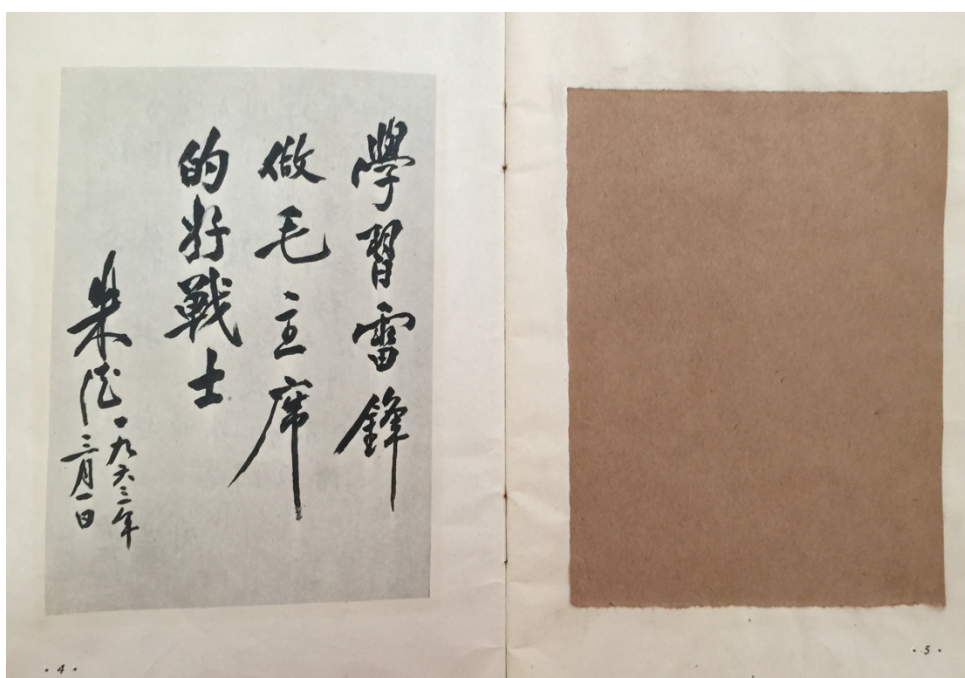 學習雷鋒
做毛主席
的好戰士
朱德
一九六三年
三月一日
· 4 ·
· 5 ·